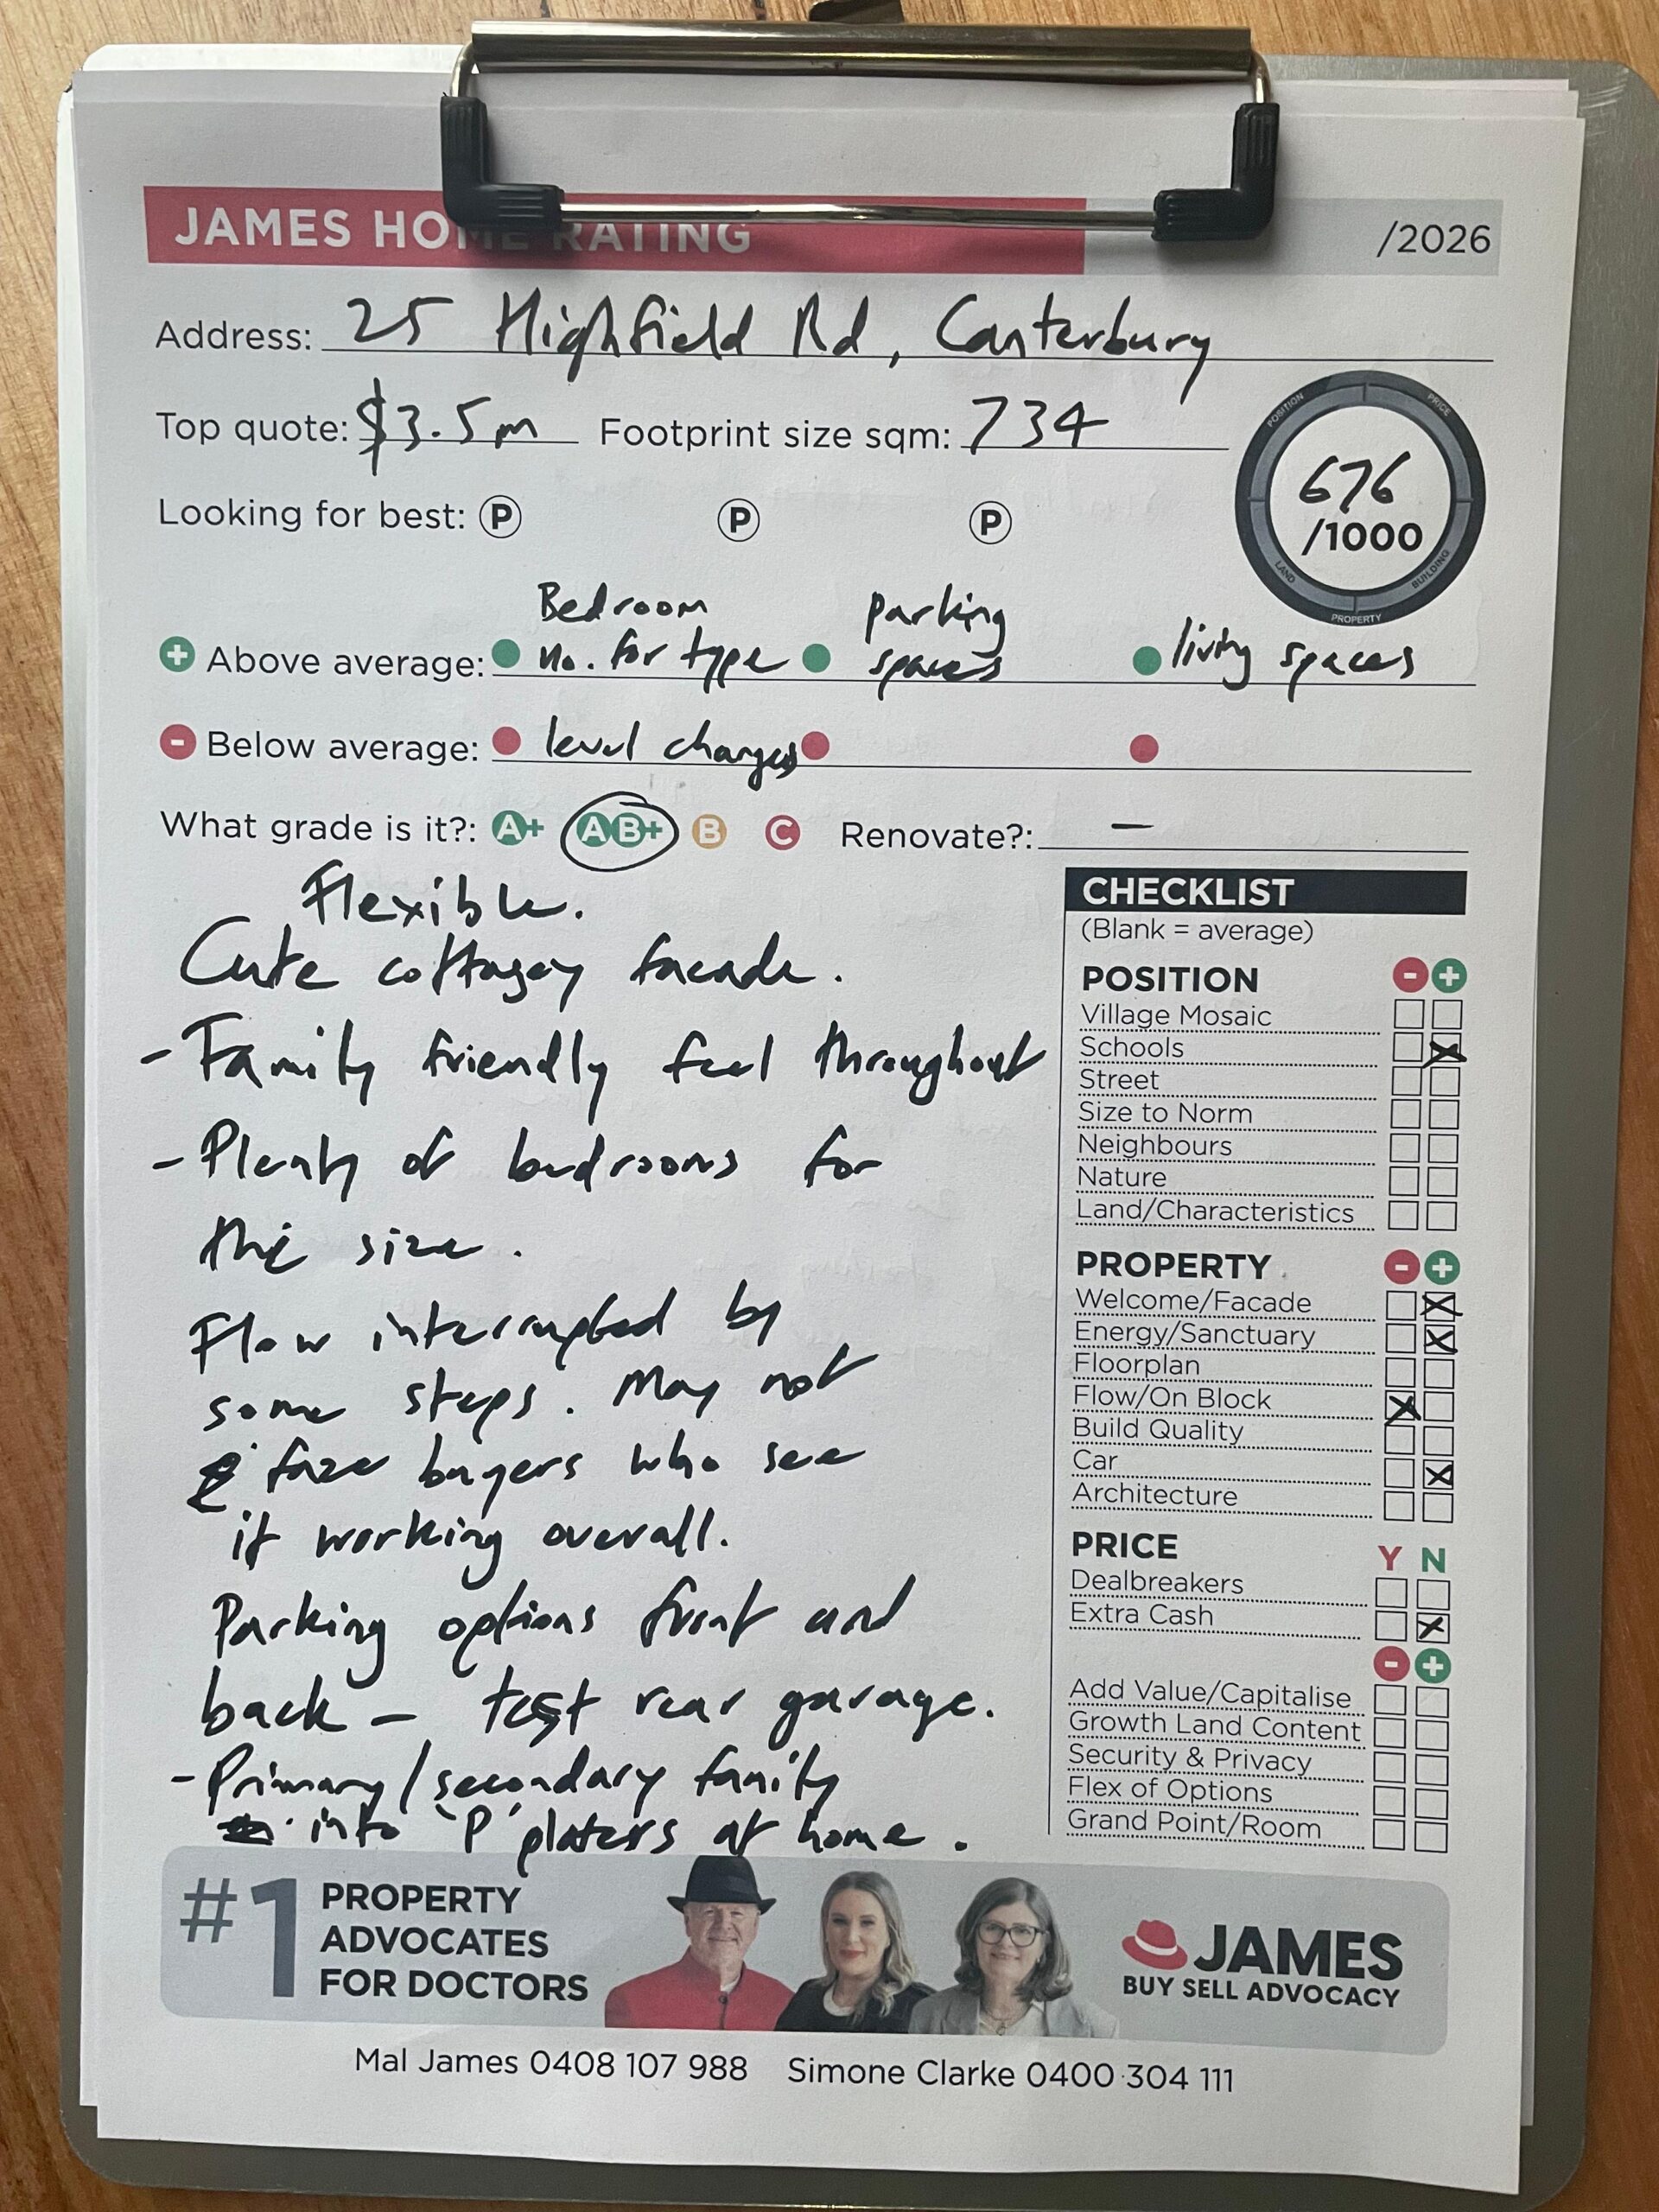 JAMES HOME RATING /2026
Address: 25 Highfield Rd, Canterbury
Top quote: $3.5m Footprint size sqm: 734
POSITION PRICE BUILDING PROPERTY LAND
676
/1000
Looking for best: P P P
Bedroom parking
+ Above average: no. for type spaces living spaces
- Below average: level changes
What grade is it?: A+ AB+ B C Renovate?: —
Flexible.
Cute cottagey facade.
- Family friendly feel throughout
- Plenty of bedrooms for
the size.
Flow interrupted by
some steps. May not
faze buyers who see
it working overall.
Parking options front and
back - test rear garage.
- Primary/secondary family
into 'P' platers at home.
CHECKLIST
(Blank = average)
POSITION - +
Village Mosaic
Schools X
Street
Size to Norm
Neighbours
Nature
Land/Characteristics
PROPERTY - +
Welcome/Facade X
Energy/Sanctuary X
Floorplan
Flow/On Block X
Build Quality
Car X
Architecture
PRICE Y N
Dealbreakers
Extra Cash X
- +
Add Value/Capitalise
Growth Land Content
Security & Privacy
Flex of Options
Grand Point/Room
#1 PROPERTY
ADVOCATES
FOR DOCTORS
JAMES
BUY SELL ADVOCACY
Mal James 0408 107 988 Simone Clarke 0400 304 111